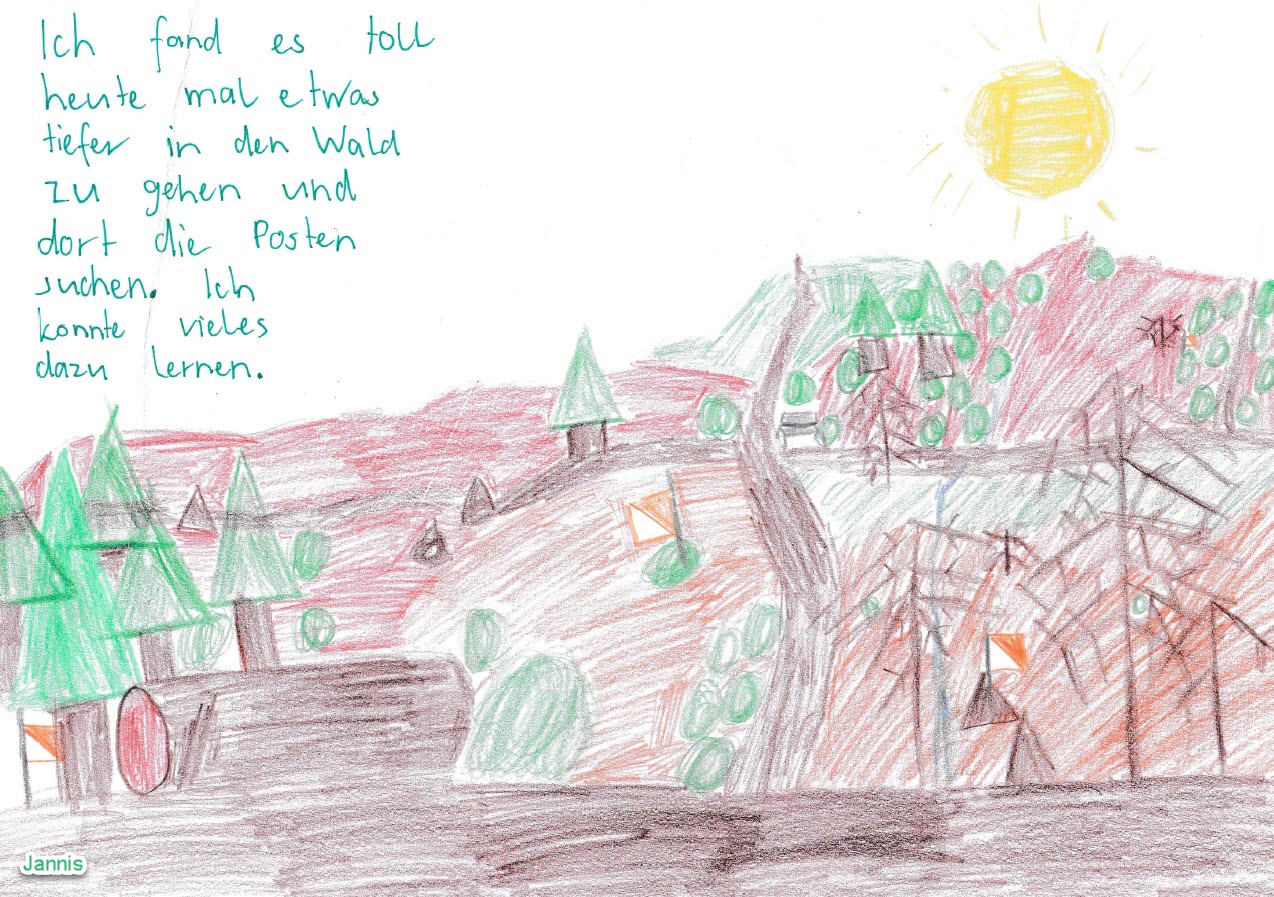 Ich fand es toll
heute mal etwas
tiefer in den Wald
zu gehen und
dort die Posten
suchen. Ich
konnte vieles
dazu lernen.
Jannis